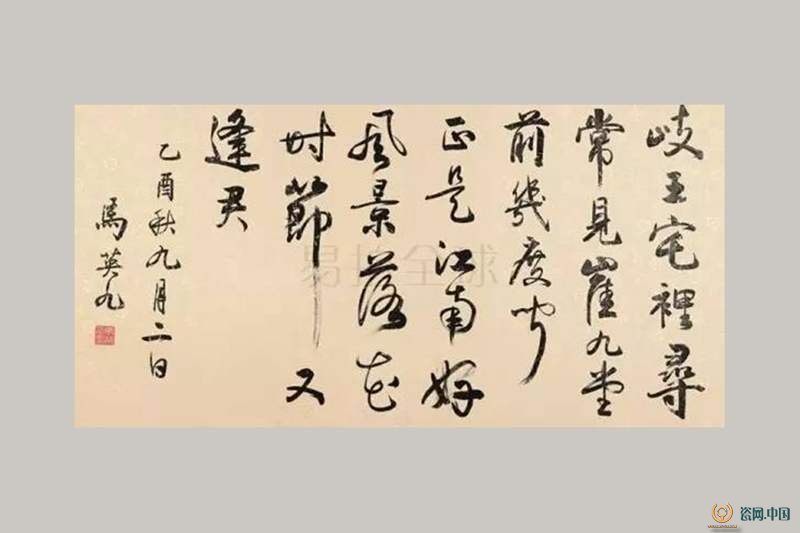 岐王宅裡尋
常見崔九堂
前幾度聞
正是江南好
風景落花
时節又
逢君
乙酉秋九月二日
馬英九
易拍全球
瓷网.中国